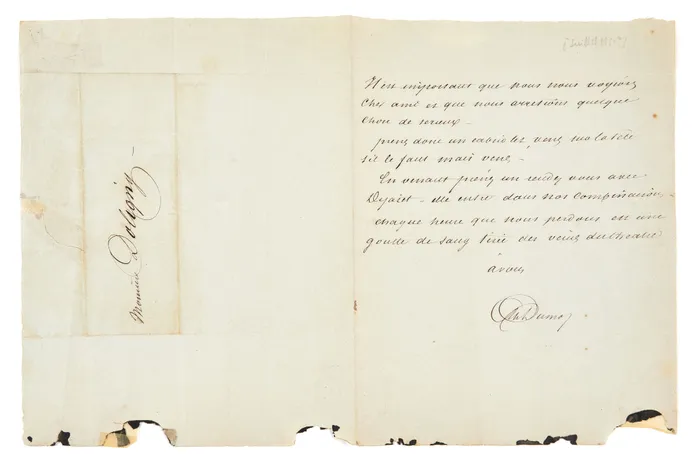 Monsieur Doligny
Il est important que nous nous voyions
cher ami et que nous arretions quelque
chose de serieux -
prens donc un cabriolet, viens
s'il le faut mais viens -
En venant prens un rendez vous avec
elle entre dans nos combinaisons
chaque heure que nous perdons est une
goutte de sang tirée des veines du theatre
à vous
Alex Dumas